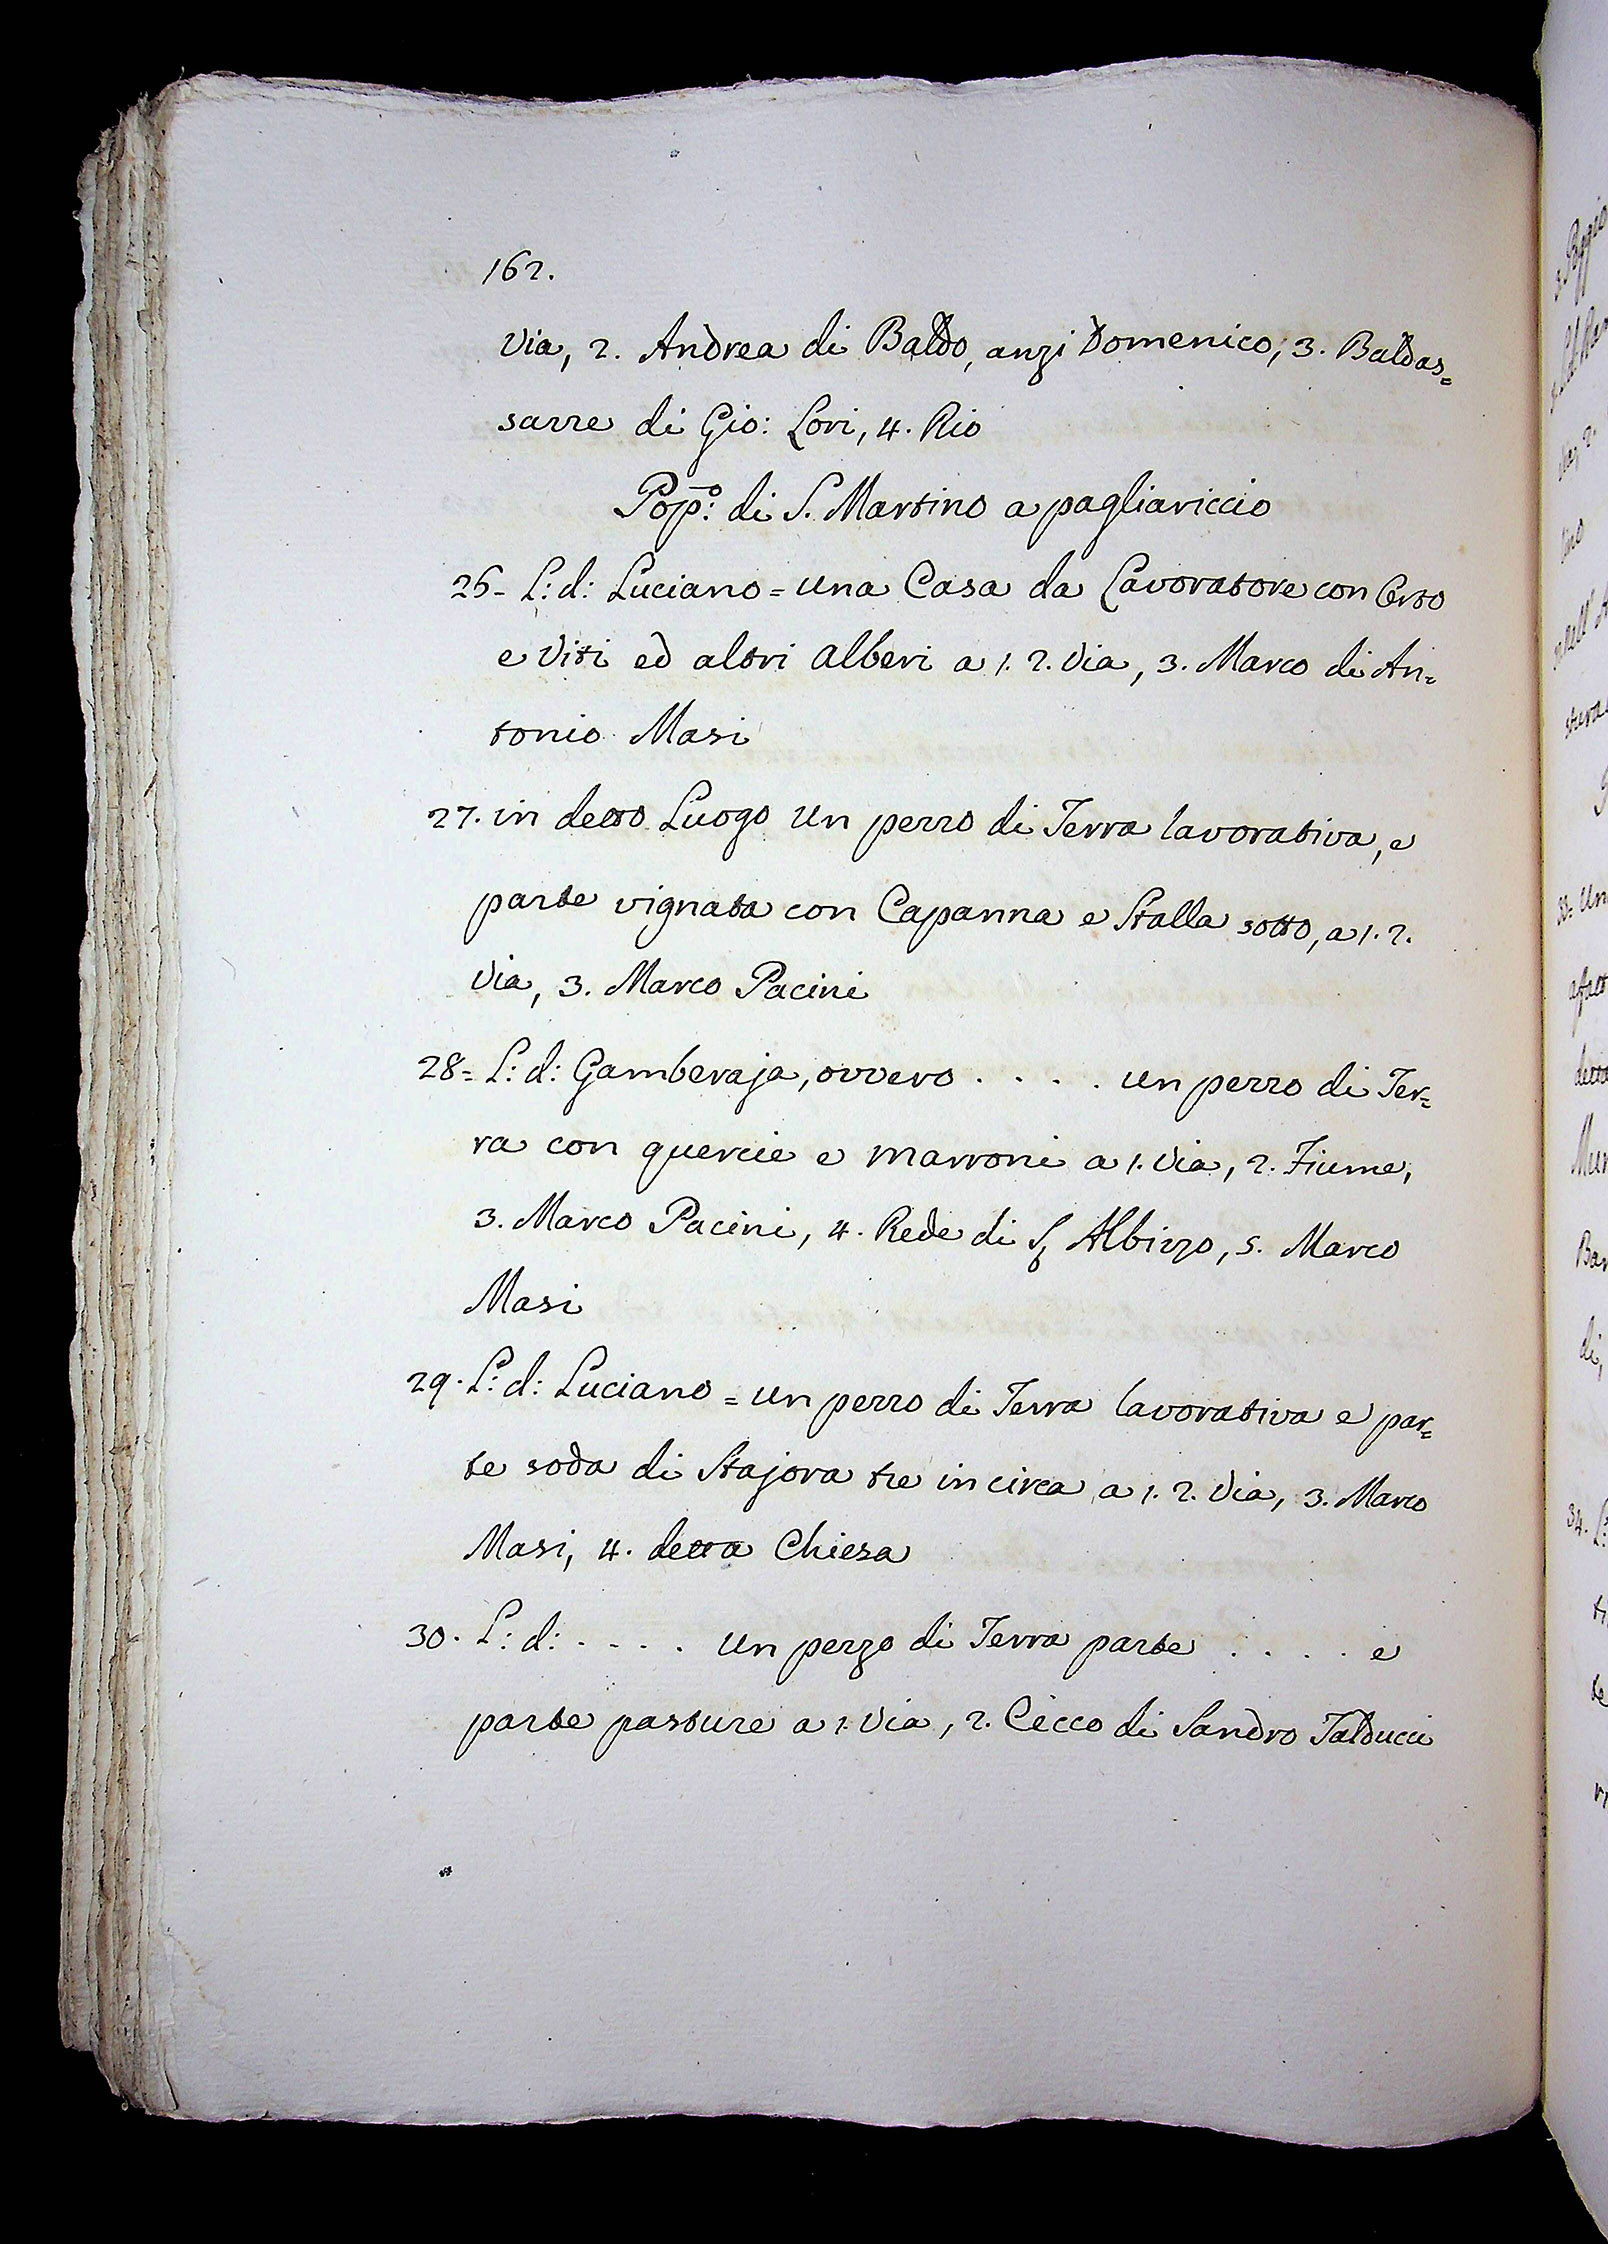 162.
Via, 2. Andrea di Baldo, anzi Domenico, 3. Baldas=
sarre di Gio: Lori, 4. Rio
Pop:º di S. Martino a pagliariccio
26- L: d: Luciano = una Casa da Lavoratore con Orto
e Viti ed altri alberi a 1. 2. Via, 3. Marco di An=
tonio Masi
27. in detto Luogo un pezzo di Terra lavorativa, e
parte vignata con Capanna e Stalla sotto, a 1. 2.
Via, 3. Marco Pacini
28= L: d: Gamberaja, ovvero . . . . un pezzo di Ter=
ra con quercie e marroni a 1. Via, 2. Fiume,
3. Marco Pacini, 4. Rede di Albizzo, 5. Marco
Masi
29. L: d: Luciano = un pezzo di Terra lavorativa e par=
te soda di Stajora tre in circa a 1. 2. Via, 3. Marco
Masi, 4. detta Chiesa
30. L: d: . . . . un pezzo di Terra parte . . . . e
parte pasture a 1. Via, 2. Cecco di Sandro Talducci